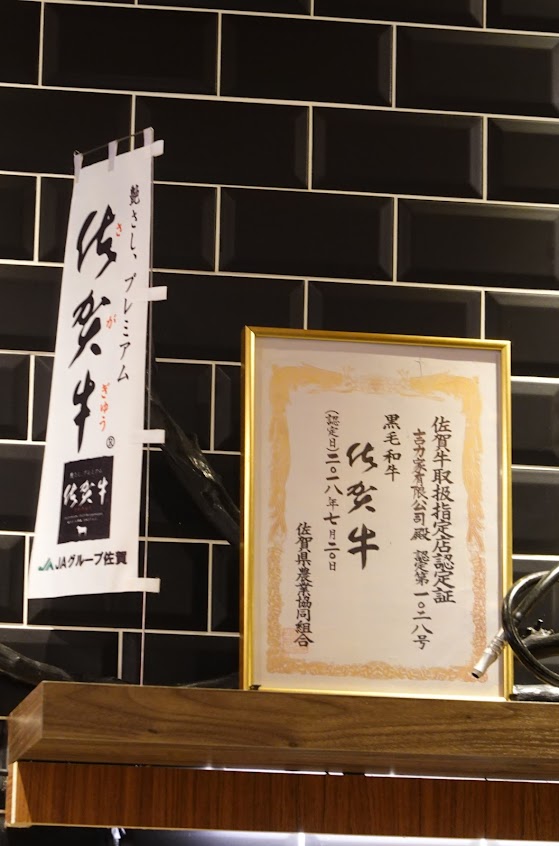 艶さし、プレミアム
佐賀牛
さ
が
ぎゅう
®
佐賀牛
JAグループ佐賀
佐賀牛取扱指定店認定証
認定第一〇二八号
吉力家有限公司殿
黒毛和牛
佐賀牛
(認定日)二〇一八年七月二〇日
佐賀県農業協同組合